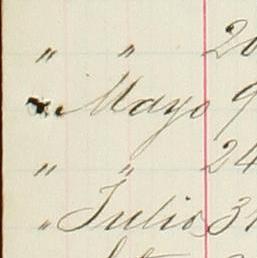 " " 20
" Mayo 9
" " 24
" Julio 31